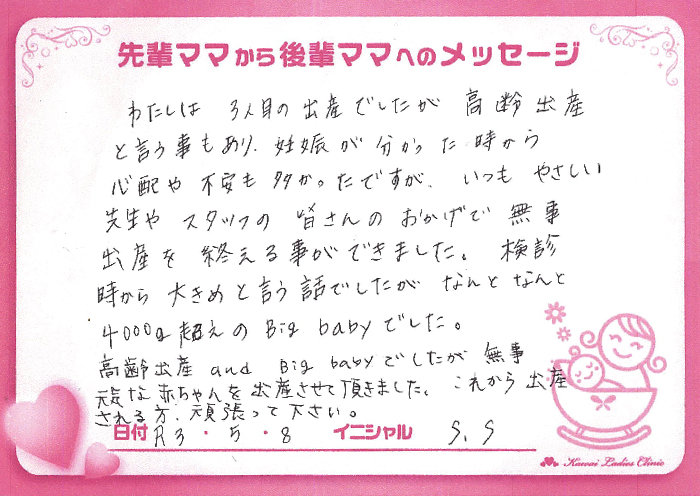 先輩ママから後輩ママへのメッセージ
わたしは 3人目の出産でしたが 高齢出産
と言う事もあり、妊娠が分かった時から
心配や不安も多かったですが、いつも やさしい
先生や スタッフの 皆さんの おかげで 無事
出産を 終える事ができました。 検診
時から 大きめと言う話でしたが なんと なんと
4000g超えの Big babyでした。
高齢出産 and Big babyでしたが 無事
元気な赤ちゃんを出産させて頂きました。これから出産
される方、頑張って下さい。
日付 R3・5・8 イニシャル S.S
Kawai Ladies Clinic